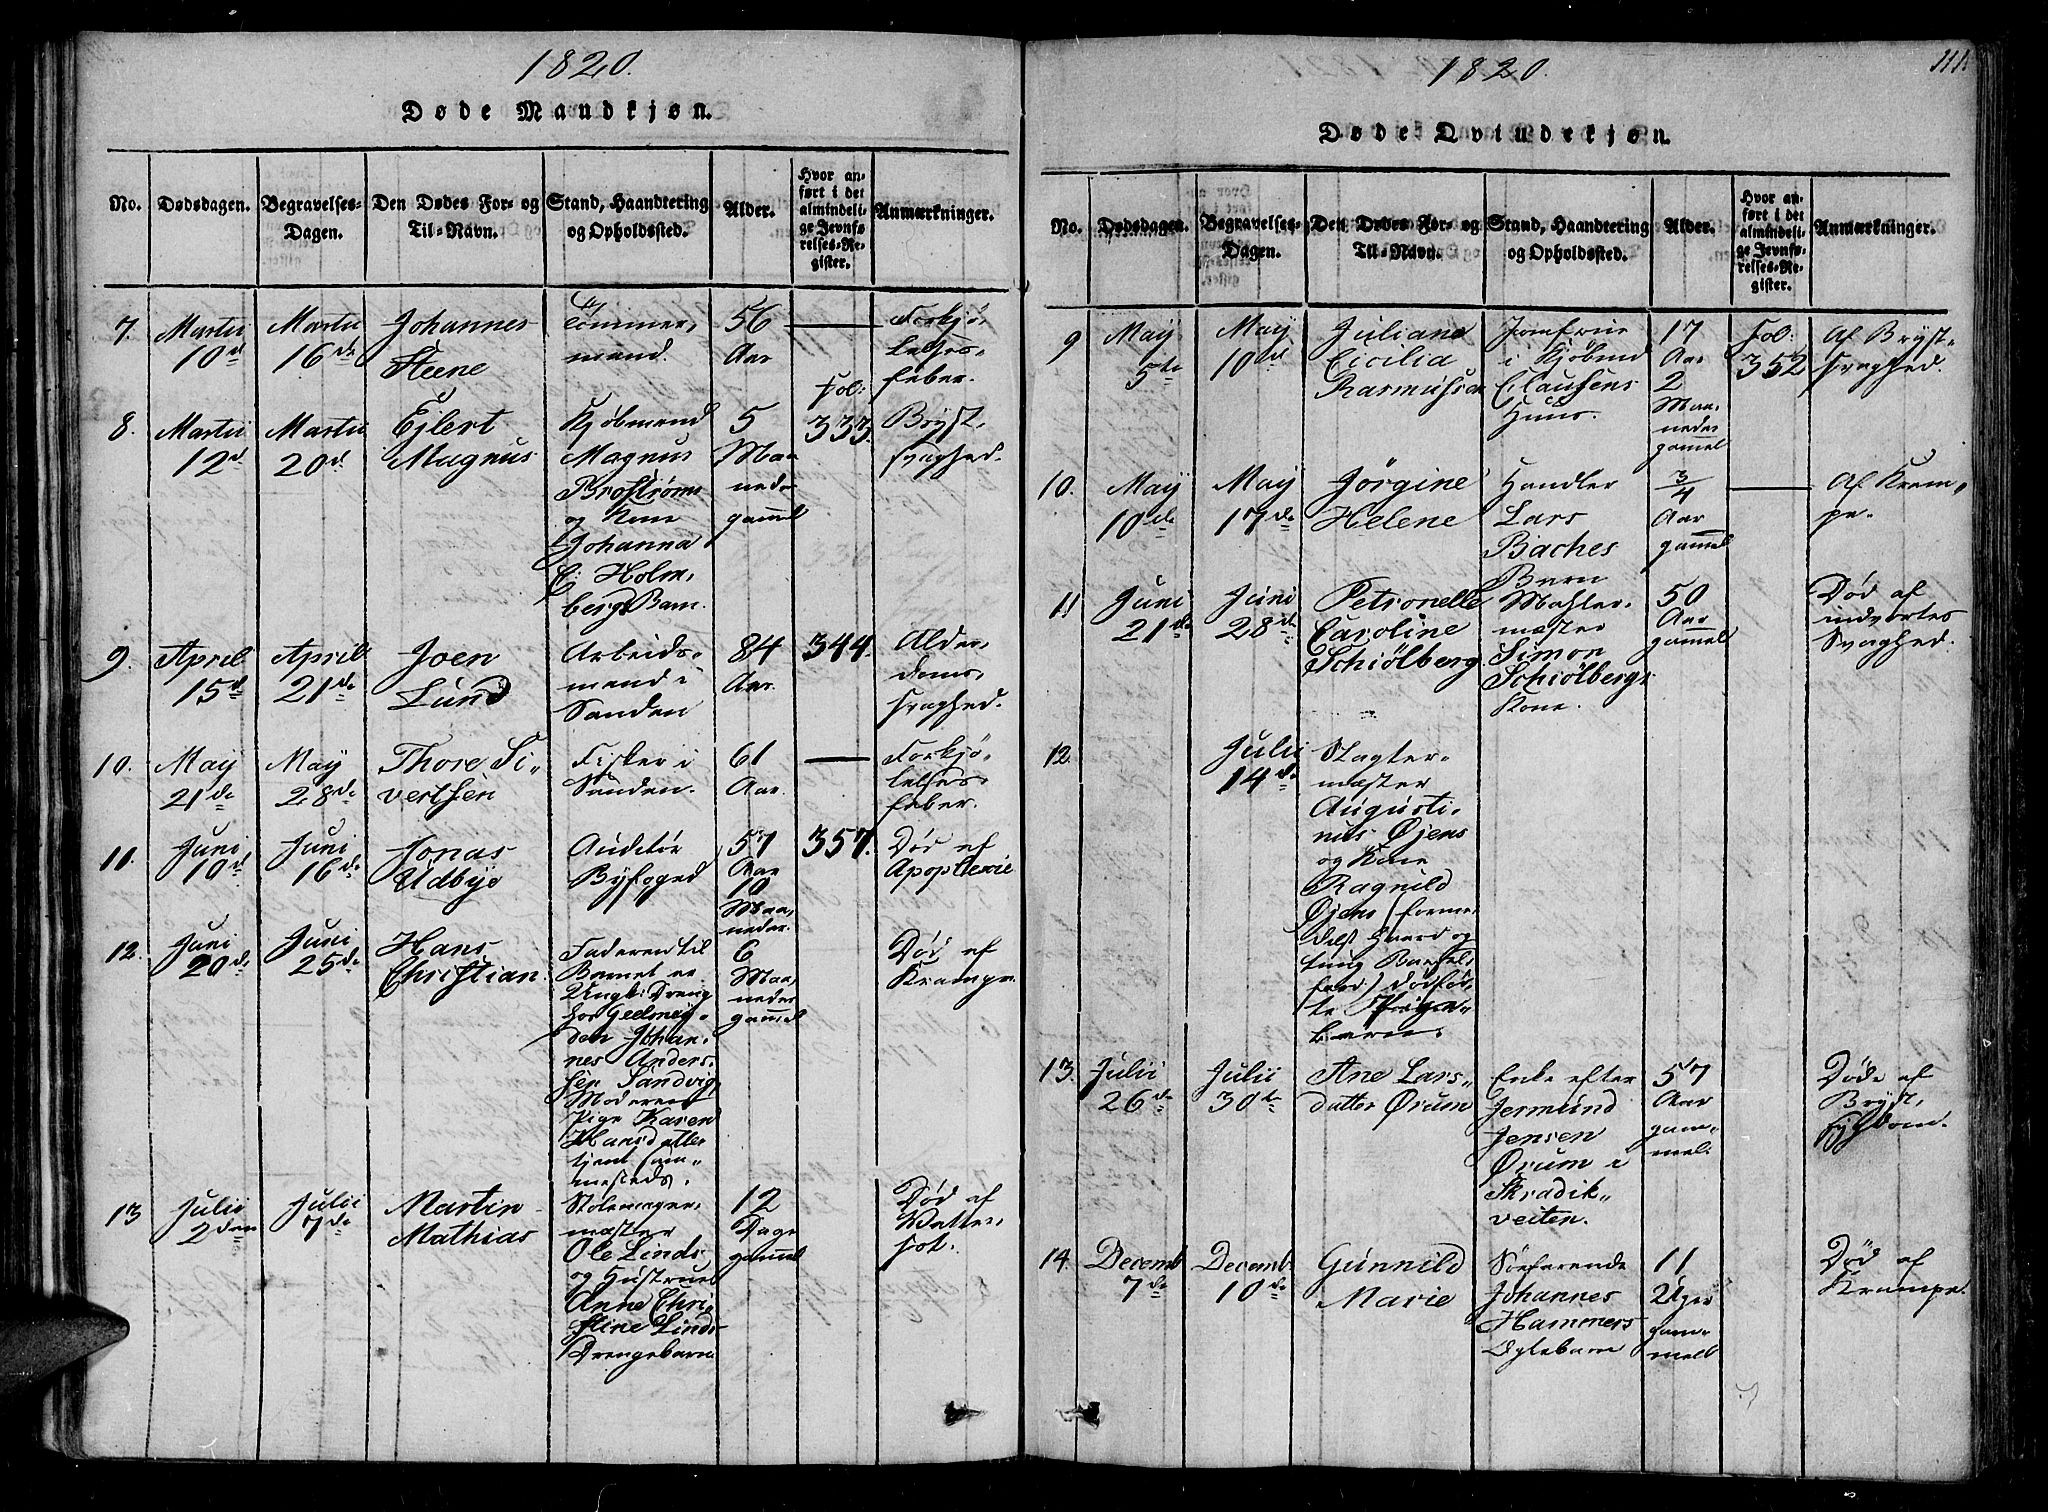 1820.
Døde Mandkjøn.
No.
Dødsdagen.
Begravelses-
Dagen.
Den Dødes For- og
Til-Navn.
Stand, Haandtering
og Opholdssted.
Alder.
Hvor an-
ført i det
almindeli-
ge Jevnfø-
relses-Re-
gister.
Anmærkninger.
7.
Martii
10d
Martii
16de
Johannes
Steene
Tømmer,
mand.
56
Aar
Forkjø,
lelses,
feber.
8.
Martii
12d
Martii
20d.
Ejlert
Magnus
Kjøbmand
Magnus
Brostrøms
og Kone
Johanna
C: Holm,
bergs Barn.
5
Maa
neder
gamel
Fol:
333.
Bryst,
svaghed.
9.
April
15d
April
21de
Joen
Lund
Arbeids,
mand i
Sanden
84
Aar.
344.
Alder,
doms,
svaghed.
10.
May
21de
May
28de
Thore Si-
vertsen
Fisker i
Sanden.
61
Aar.
Forkjø,
lelses,
feber.
11.
Juni
10d
Juni
16de
Jonas
Udbye
Auditør
Byfoged
57
Aar
10
Maa,
neder.
357.
Død af
Apoplexie
12.
Juni
20de
Juni
25de
Hans
Christian.
Faderen til
Barnet er
Ungk: Dreng
hos
den Johan-
nes Anders,
sen Sandvig
Moderen
Pige Karen
Hansdatter
tjent sam-
mesteds.
6
Maa,
neder
gamel
Død af
Krampe.
13
Julii
2den
Julii
7de
Martin
Mathias
Stolemager,
mæster
Ole Linds
og Hustrues
Anne Chri,
stine Linds
Drengebarn
12
Dage
gamel
Død af
Vatter,
sot.
1820.
111.
Døde Qvindekjøn.
No.
Dødsdagen.
Begravelses-
Dagen.
Den Dødes For- og
Til-Navn.
Stand, Haandtering
og Opholdssted.
Alder.
Hvor an-
ført i det
almindeli-
ge Jevnfø-
relses-Re-
gister.
Anmærkninger.
9
May
5te
May
10de
Juliane
Cicilia
Rasmussen
Jomfrue
i Kjøbmd
Clausens
Huus.
17
Aar
2
Maa,
neder
gamel
Fol:
352
Af Bryst-
svaghed.
10.
May
10de
May
17de
Jørgine
Helene
Handler
Lars
Baches
Barn
3/4
Aar
gamel
Af Kram-
pe.
11
Juni
21de
Juni
28de
Petronelle
Caroline
Schiølberg.
Mahler,
mæster
Simon
Schiølbergs
Kone.
50
Aar
gamel
Død af
indvortes
Svaghed.
12.
Julii
14de
Slagter-
mæster
Augusti-
nus Øjens
og Kone
Ragnild
Øjens (forme,
delst haard og
tung Barsel,
færd) dødfød,
te Pige-
barn.
13.
Julii
26de
Julii
30te
Ane Lars-
datter Ørum
Enke efter
Jermund
Jensen
Ørum i
Skradik-
veiten.
57
Aar
gam-
mel.
Døde af
Bryst,
sygdom.
14.
Decemb
7de
Decemb.
10de
Gunnild
Marie
Søefarende
Johannes
Hammers
Ægtebarn
11
Uger
gam-
mel
Død af
Krampe.